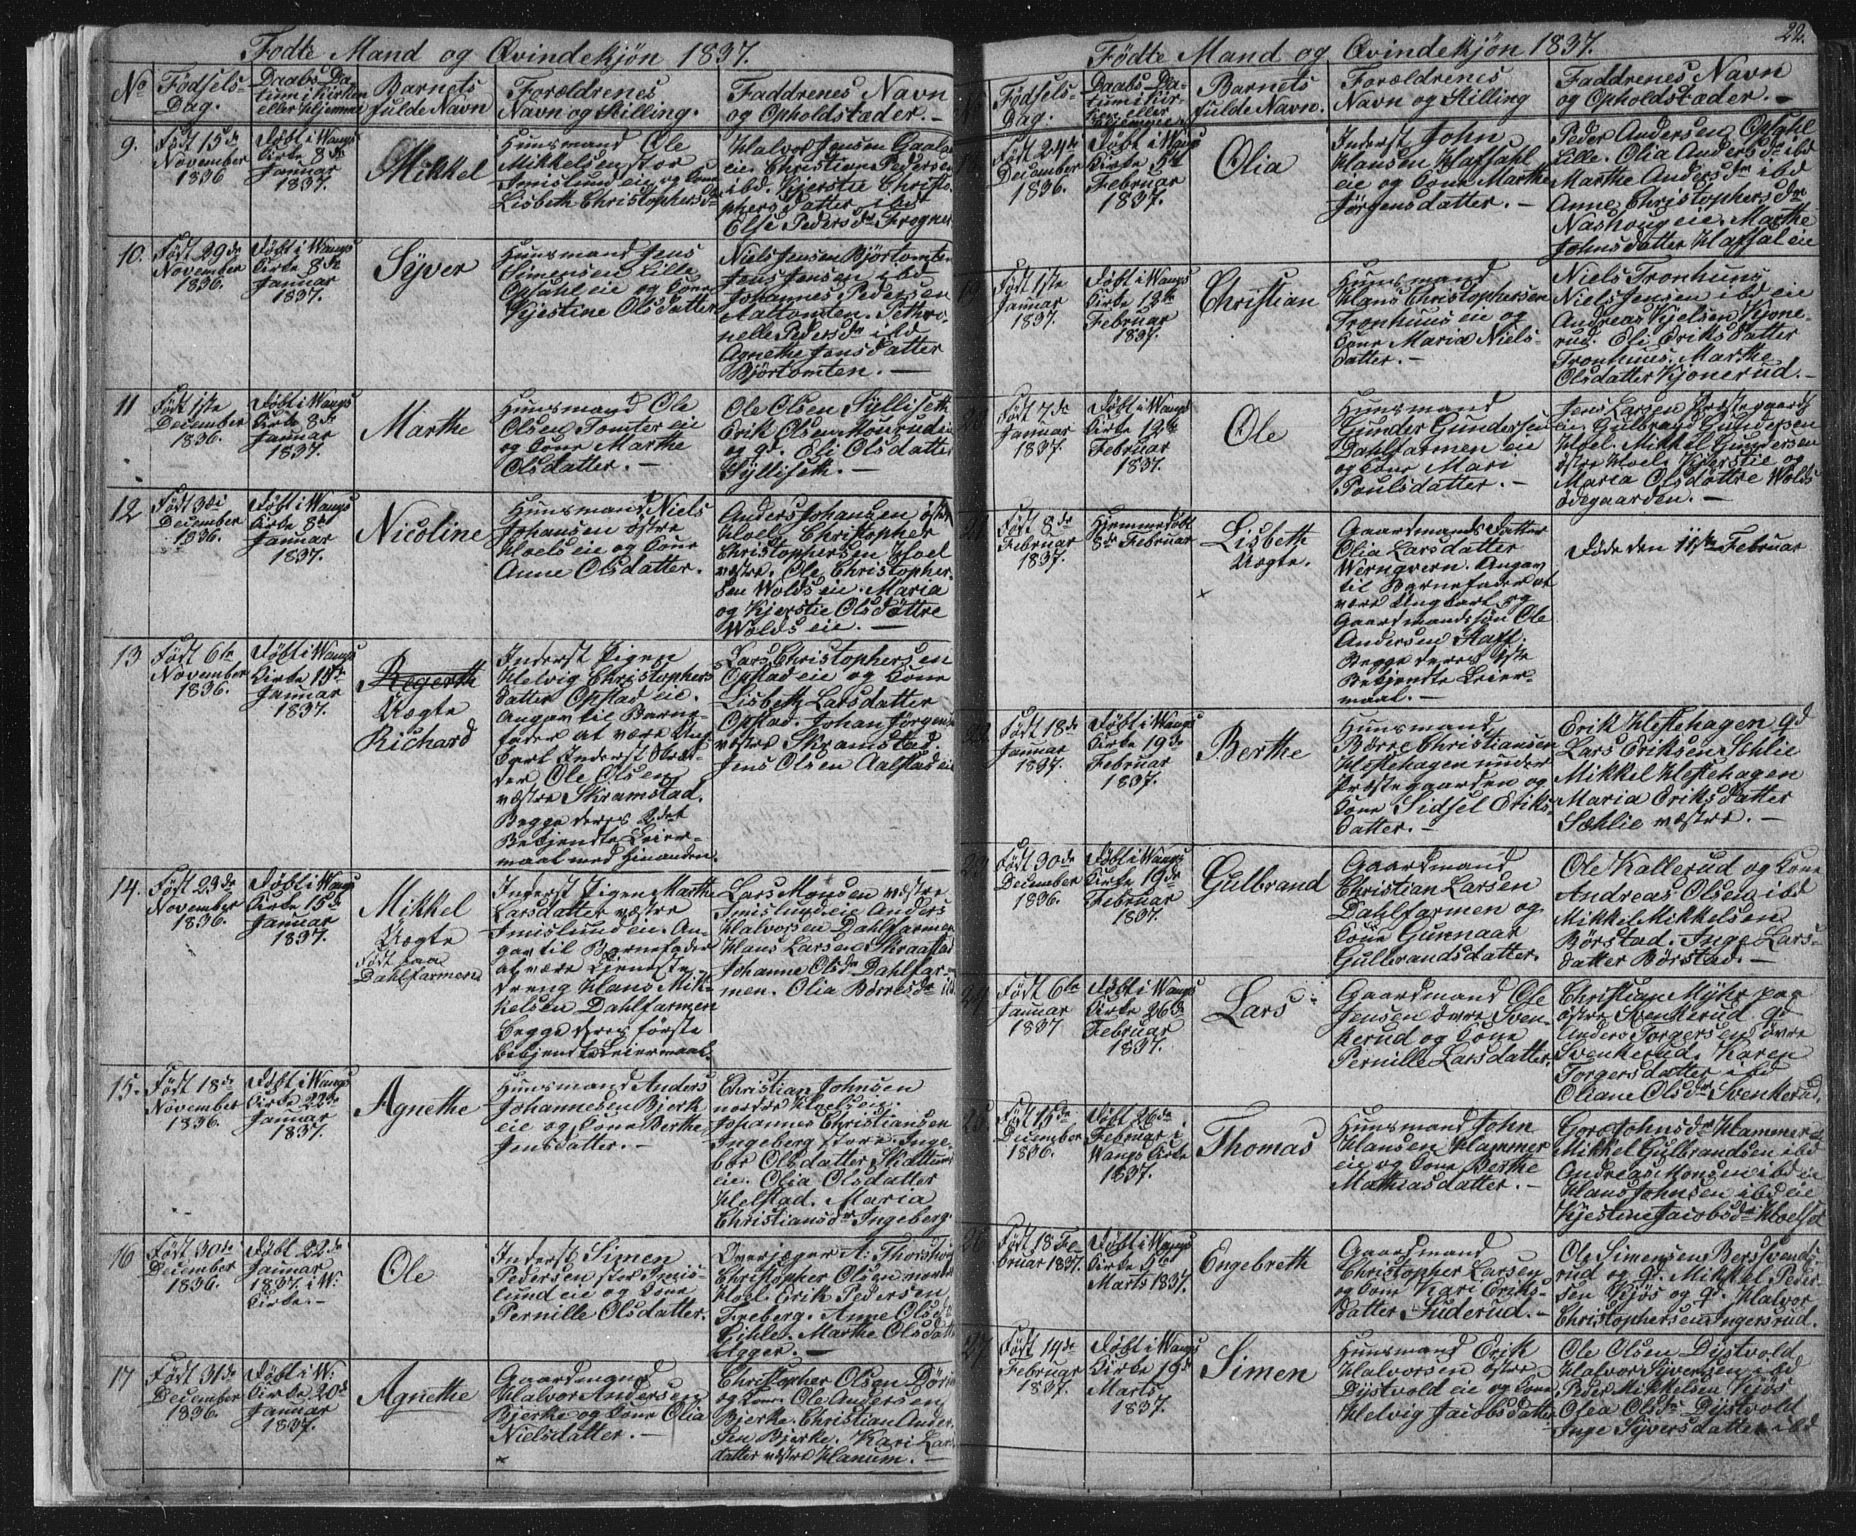 Födte Mand og Qvindekjön 1837.
No
Födsels-
Dag.
Daabs Da-
tum i Kirken
eller Hjemme
Barnets
fulde Navn
Forældrenes
Navn og Stilling.
Faddrenes Navn
og Opholdstæder. —
9.
Födt 15de
November
1836
Döbt i Wangs
Kirke 8de
Januar
1837.
Mikkel
Huusmand Ole
Mikkelsen stor
Imislund eie og Kone
Lisbeth Christophersd
Halvor Jensen Gaalaas
eie. Christine Pedersen
ibd. Kjerstie Christo-
phers Datter ibd
Else Pedersdr Frogner
10.
Födt 29de
November
1836.
Döbt i Wangs
Kirke 8de
Januar
1837.
Syver
Huusmand Jens
Simensen Lille
Opsahl eie og Kone
Kjestine Olsdatter
Niels Jensen Björtomten
Jens Jensen ibd
Johannes Pedersen
Aaltomten. Pethro-
nelle Pedersdr ibd
Agnethe Jensdatter
Björtomten. —
11
Födt 1ste
December
1836.
Döbt i Wangs
Kirke 8de
Januar
1837.
Marthe
Huusmand Ole
Olsen Tomter eie
og Kone Marthe
Olsdatter. —
Ole Olsen Gylliseth
Erik Olsen Muurud eie
og gd. Eli Olsdatter
Gylliseth. —
12
Födt 3die
December
1836.
Döbt i Wangs
Kirke 8de
Januar
1837.
Nicoline
Huusmand Niels
Johansen östre
Hoels eie og Kone
Anne Olsdatter.
Anders Johansen östre
Hoel Christopher
Christophersen Hoel
vestre. Ole Christopher-
sen Wolds eie. Maria
og Kjerstie Olsdöttre
Wolds eie. —
13
Födt 6te
November
1836.
Döbt i Wangs
Kirke 15de
Januar
1837.
Regerth
Uægte
Richard
Inderst Pigen
Helvig Christophers
datter Opstad eie.
Angav til Barne-
fader at være Ung-
karl Inderst
Ole Olsen
vestre Skramstad.
Begge deres 2det
Bekjendte Leier-
maal med Hinanden.
Lars Christophersen
Opstad eie og Kone
Lisbeth Larsdatter
Opstad. Johan Jörgens
vestre Skramstad.
Jens Olsen Aalstad eie
14.
Födt 23de
November
1836.
Döbt i Wangs
Kirke 15de
Januar
1837.
Mikkel
Uægte
Födt paa
Dahlfarmen
Inderst Pigen Marthe
Larsdatter vestre
Imislund eie. An-
gav til Barnefader
at være Tjeneste
dreng Hans Mik-
kelsen Dahlfarmen
begge deres förste
bekjendte Leiermaal.
Lars Monsen vestre
Imislund eie Anders
Halvorsen Dahlfarmen
Hans Larsen Skraastad
Johanne Olsdr Dahlfar-
men. Olia Börresdr ibd
15.
Födt 18de
November
1836.
Döbt i Wangs
Kirke 22de
Januar
1837.
Agnethe
Huusmand Anders
Johannesen Bjerk
eie og Kone Berthe
Jensdatter. —
Christian Johnsen
nordre Hoels eie.
Johannes Christiansen
Ingeberg store. Inge-
bor Olsdatter
eie. Olia Olsdatter
Helstad. Maria
Christiansdr Ingeberg.
16
Födt 30de
December
1836.
Döbt 22de
Januar
1837. i W:
Kirke. —
Ole
Inderst Simen
Pedersen stor Imis-
lund eie og Kone
Pernille Olsdatter.
Overjæger A: Thorshoug
Christopher Olsen nordre
Hoel. Erik Pedersen
Freberg. Anne Olsdr
Lihle. Marthe Olsdatter
Egger. —
17
Födt 31de
December
1836.
Döbt i W:
Kirke 20de
Januar
1837.
Agnethe
Gaardmand
Halvor Andersen
Bjerke og Kone Olia
Nielsdatter. —
Christopher Olsen
og Kone. Ole Andersen
Bjerke. Christian Ander-
sen Bjerke. Kari Lars
datter vestre Hanum. —
22.
Födte Mand og Qvindekjön 1837.
Födsels-
Dag.
Daabs Da-
tum i Kir-
ken eller
Hjemme
Barnets
fulde Navn.
Forældrenes
Navn og Stilling
Faddrenes Navn
og Opholdstæder. —
Födt 24de
December
1836.
Döbt i Wangs
Kirke 5te
Februar
1837.
Olia
Inderst John
Hansen Hafsahl
eie og Kone Marthe
Jörgensdatter. —
Peder Andersen Opsahl
Lille. Olia Andersdr ibd
Marthe Andersdr ibd
Anne Christophersdr
Nashoug eie. Marthe
Johnsdatter Hafsal eie
Födt 1ste
Januar
1837.
Döbt i Wangs
Kirke 12te
Februar
1837.
Christian
Huusmand
Hans Christophersen
Tronhuus eie og
Kone Maria Niels-
datter. —
Niels Tronhuus
Niels Jensen ibd eie
Andreas Kjelsen Kjone-
rud. Eli Eriksdatter
Tronhuus. Marthe
Olsdatter Kjonerud. —
Födt 7de
Januar
1837.
Döbt i Wangs
Kirke 12te
Februar
1837.
Ole
Huusmand
Gunder Gundersen
Dahlfarmen eie
og Kone Mari
Poulsdatter. —
Jens Larsen Præstegaards
eie. Gulbrand Gundersen
Hoel. Mikkel Gundersen
östre Hoel. Kjerstie og
Maria Olsdöttre Wolds
ödegaarden. —
21
Födt 8de
Februar
1837.
Hjemmedöbt
8de Februar
Lisbeth
Uægte.
Gaardmands Datter
Olia Larsdatter
Wernqvern. Angav
til Barnefader at
være Ungkarl og
Gaardmandssön Ole
Andersen Staff.
Begge deres 1ste
Bekjendte Leier-
maal. —
Döde den 11te Februar
22
Födt 18de
Januar
1837.
Döbt i Wangs
Kirke 19de
Februar
1837.
Berthe
Huusmand
Börre Christiansen
Hestehagen under
Præstegaarden og
Kone Sidsel Eriks-
datter. —
Erik Hestehagen gd
Lars Eriksen Sehlie
Mikkel Hestehagen
Maria Eriksdatter
Sehlie vestre. —
23
Födt 30de
December
1836.
Döbt i Wangs
Kirke 19de
Februar
1837.
Gulbrand
Gaardmand
Christian Larsen
Dahlfarmen og
Kone Gunnaar
Gulbrandsdatter.
Ole Kallerud og Kone
Andreas Olsen ibd
Mikkel Mikkelsen
Börstad. Inge Lars-
datter Börstad. —
24
Födt 6te
Januar
1837
Döbt i Wangs
Kirke 26de
Februar
1837.
Lars
Gaardmand Ole
Jensen övre Sven-
kerud og Kone
Pernille Larsdatter.
Christian Myhr paa
östre Svenkerud gd
Anders Torgersen övre
Svenkerud. Karen
Torgersdatter ibd
Oliane Olsdr Svenkerud.
25
Födt 15de
December
1836.
Döbt 26de
Februar i
Wangs Kirke
1837.
Thomas
Huusmand John
Hansen Hammer
eie og Kone Berthe
Mathiasdatter. —
Goro Johnsdr Hammer
Mikkel Gulbrandsen ibd
Andreas Monsen ibd eie
Hans Johnsen ibd eie
Kjestine Jacobsdr Hoelset
26
Födt 18 Fe
bruar 1837.
Döbt i Wangs
Kirke 5te
Marts 1837.
Engebreth
Gaardmand
Christopher Larsen
og Kone Kari Eriks-
datter Suderud. —
Ole Simensen Berssvends-
rud og gd. Mikkel Peder-
sen Kjös og gd. Halvor
Christophersen Ingersrud.
27
Födt 14de
Februar
1837.
Döbt i Wangs
Kirke 19de
Marts
1837.
Simen
Huusmand Erik
Halvorsen östre
Dystvold eie og Kone
Helvig Jacobsdatter
Ole Olsen Dystvold
Halvor Syversen ibd
Peder Mikkelsen Kjös
Olea Olsdr Dystvold
Inge Syversdatter ibd